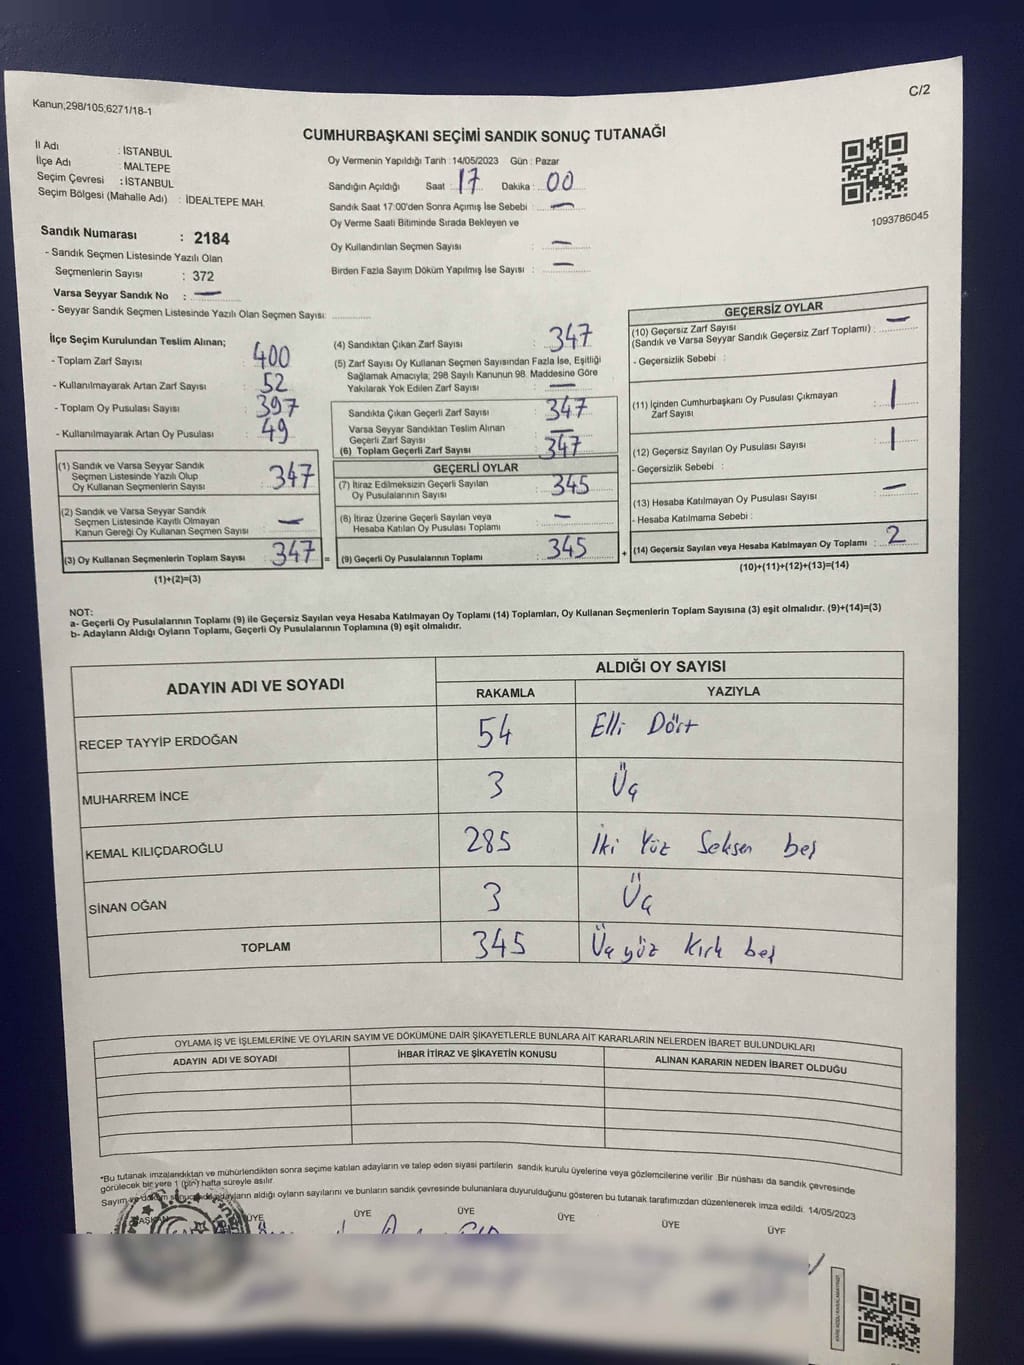 C/2
Kanun;298/105,6271/18-1
CUMHURBAŞKANI SEÇİMİ SANDIK SONUÇ TUTANAĞI
İl Adı : İSTANBUL
İlçe Adı : MALTEPE
Seçim Çevresi : İSTANBUL
Seçim Bölgesi (Mahalle Adı) : İDEALTEPE MAH.
Oy Vermenin Yapıldığı Tarih : 14/05/2023 Gün : Pazar
Sandığın Açıldığı Saat : 17 Dakika : 00
Sandık Saat 17:00'den Sonra Açımış İse Sebebi : —
Oy Verme Saati Bitiminde Sırada Bekleyen ve
Oy Kullandırılan Seçmen Sayısı : —
Birden Fazla Sayım Döküm Yapılmış İse Sayısı : —
1093786045
Sandık Numarası : 2184
- Sandık Seçmen Listesinde Yazılı Olan
Seçmenlerin Sayısı : 372
Varsa Seyyar Sandık No : —
- Seyyar Sandık Seçmen Listesinde Yazılı Olan Seçmen Sayısı:
İlçe Seçim Kurulundan Teslim Alınan;
- Toplam Zarf Sayısı : 400
- Kullanılmayarak Artan Zarf Sayısı : 52
- Toplam Oy Pusulası Sayısı : 397
- Kullanılmayarak Artan Oy Pusulası : 49
(1) Sandık ve Varsa Seyyar Sandık
Seçmen Listesinde Yazılı Olup
Oy Kullanan Seçmenlerin Sayısı : 347
(2) Sandık ve Varsa Seyyar Sandık
Seçmen Listesinde Kayıtlı Olmayan
Kanun Gereği Oy Kullanan Seçmen Sayısı : —
(3) Oy Kullanan Seçmenlerin Toplam Sayısı : 347 =
(1)+(2)=(3)
(4) Sandıktan Çıkan Zarf Sayısı : 347
(5) Zarf Sayısı Oy Kullanan Seçmen Sayısından Fazla İse, Eşitliği
Sağlamak Amacıyla; 298 Sayılı Kanunun 98. Maddesine Göre
Yakılarak Yok Edilen Zarf Sayısı : —
Sandıkta Çıkan Geçerli Zarf Sayısı : 347
Varsa Seyyar Sandıktan Teslim Alınan
Geçerli Zarf Sayısı : —
(6) Toplam Geçerli Zarf Sayısı : 347
GEÇERLİ OYLAR
(7) İtiraz Edilmeksizin Geçerli Sayılan
Oy Pusulalarının Sayısı : 345
(8) İtiraz Üzerine Geçerli Sayılan veya
Hesaba Katılan Oy Pusulası Toplamı : —
(9) Geçerli Oy Pusulalarının Toplamı : 345 +
GEÇERSİZ OYLAR
(10) Geçersiz Zarf Sayısı
(Sandık ve Varsa Seyyar Sandık Geçersiz Zarf Toplamı) : —
- Geçersizlik Sebebi :
(11) İçinden Cumhurbaşkanı Oy Pusulası Çıkmayan
Zarf Sayısı : 1
(12) Geçersiz Sayılan Oy Pusulası Sayısı : 1
- Geçersizlik Sebebi :
(13) Hesaba Katılmayan Oy Pusulası Sayısı : —
- Hesaba Katılmama Sebebi :
(14) Geçersiz Sayılan veya Hesaba Katılmayan Oy Toplamı : 2
(10)+(11)+(12)+(13)=(14)
NOT:
a- Geçerli Oy Pusulalarının Toplamı (9) ile Geçersiz Sayılan veya Hesaba Katılmayan Oy Toplamı (14) Toplamları, Oy Kullanan Seçmenlerin Toplam Sayısına (3) eşit olmalıdır. (9)+(14)=(3)
b- Adayların Aldığı Oyların Toplamı, Geçerli Oy Pusulalarının Toplamına (9) eşit olmalıdır.
ADAYIN ADI VE SOYADI ALDIĞI OY SAYISI
RAKAMLA YAZIYLA
RECEP TAYYİP ERDOĞAN 54 Elli Dört
MUHARREM İNCE 3 Üç
KEMAL KILIÇDAROĞLU 285 İki Yüz Seksen beş
SİNAN OĞAN 3 Üç
TOPLAM 345 Üç yüz Kırk beş
OYLAMA İŞ VE İŞLEMLERİNE VE OYLARIN SAYIM VE DÖKÜMÜNE DAİR ŞİKAYETLERLE BUNLARA AİT KARARLARIN NELERDEN İBARET BULUNDUKLARI
ADAYIN ADI VE SOYADI İHBAR İTİRAZ VE ŞİKAYETİN KONUSU ALINAN KARARIN NEDEN İBARET OLDUĞU
*Bu tutanak imzalandıktan ve mühürlendikten sonra seçime katılan adayların ve talep eden siyasi partilerin sandık kurulu üyelerine veya gözlemcilerine verilir. Bir nüshası da sandık çevresinde
görülecek bir yere 1 (bir) hafta süreyle asılır.
Sayım ve döküm adayların aldığı oyların sayılarını ve bunların sandık çevresinde bulunanlara duyurulduğunu gösteren bu tutanak tarafımızdan düzenlenerek imza edildi. 14/05/2023
ÜYE ÜYE ÜYE ÜYE ÜYE ÜYE
T.C.